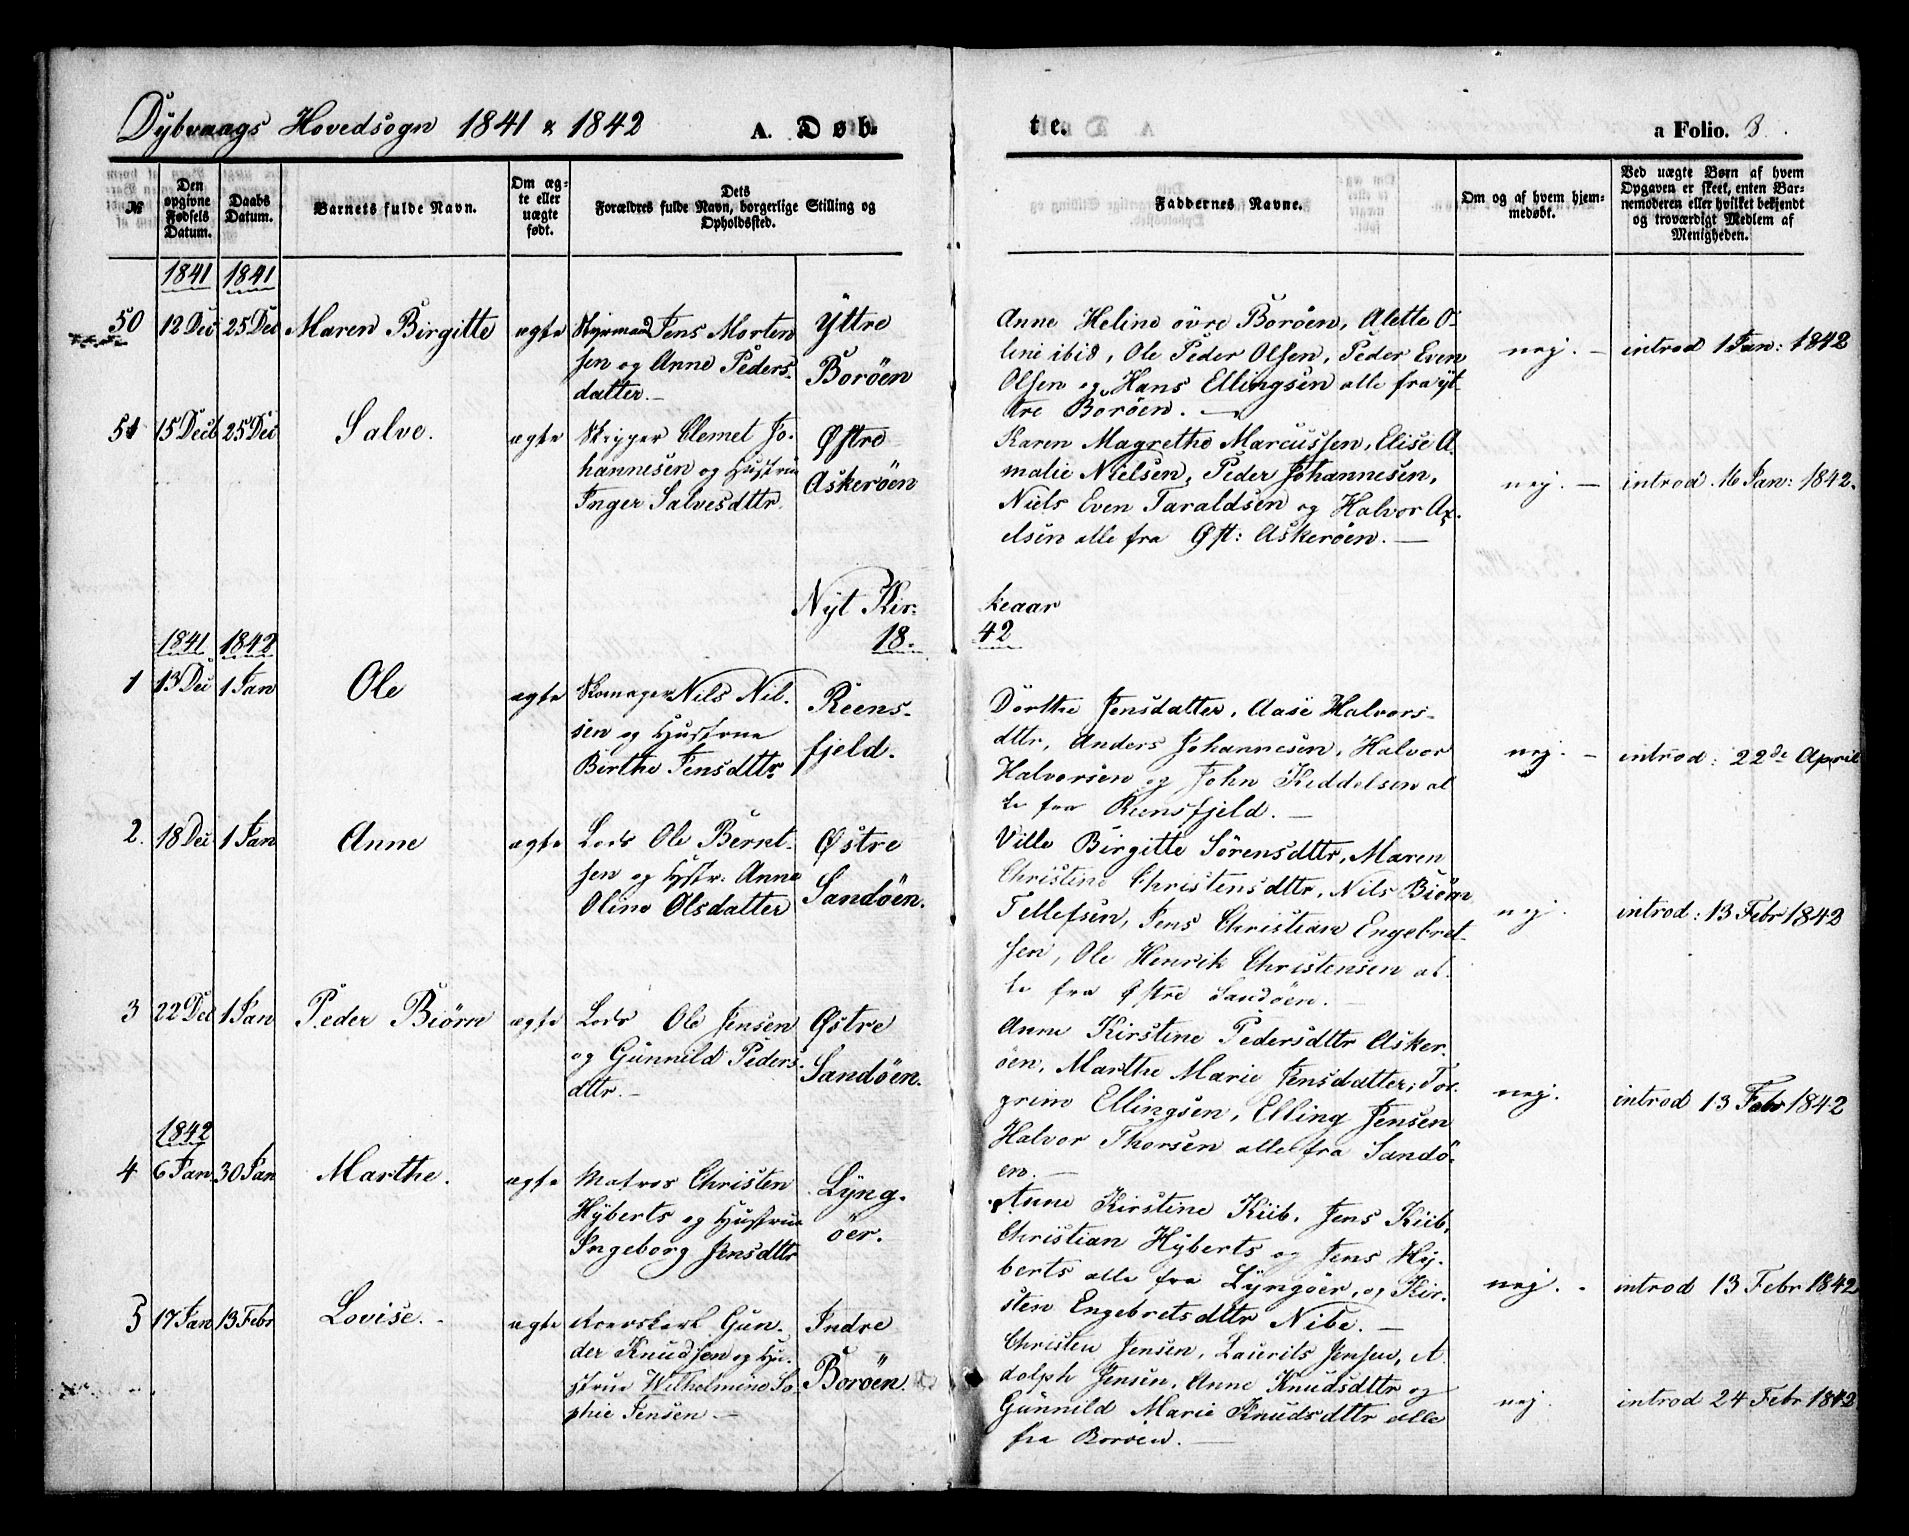 Dybvaags Hovedsogn 1841 & 1842 A. Døb-
te. a Folio. 3.
№
Den opgivne Fødsels Datum.
Daabs Datum.
Barnets fulde Navn.
Om ægte eller uægte født.
Dets Forældres fulde Navn, borgerlige Stilling og Opholdssted.
Faddernes Navne.
Om og af hvem hjemmedøbt.
Ved uægte Børn af hvem Opgaven er skeet, enten Barnemoderen eller hvilket bekjendt og troværdigt Medlem af Menigheden.
1841 1841
50 12 Dec 25 Dec Maren Birgitte ægte
Styrmand Jens Morten
sen og Anne Peders-
datter.
Yttre
Boröen
Anne Heline övre Boröen, Alette O-
line ibid, Ole Peder Olsen, Peder Even
Olsen og Hans Ellingsen alle fra yt-
tre Boröen.
nej. introd 1 Jan: 1842
51 15 Decb 25 Dec Salve. ægte
Skipper Clemet Jo-
hannesen og Hustrue
Inger Salvesdttr.
Østre
Askeröen
Karen Magrethe Marcussen, Elise A-
malie Nielsen, Peder Johannesen,
Niels Even Taraldsen og Halvor Ax-
elsen alle fra Øst: Askeröen.
nej. introd 16 Jan: 1842.
Nyt Kir-
keaar
18 42
1841 1842
1 13 Dec 1 Jan Ole ægte
Skomager Nils Nil-
sen og Hustrue
Birthe Jensdttr
Reens-
fjeld.
Dorthe Jensdatter, Aase Halvors-
dttr, Anders Johannesen, Halvor
Halvorsen og John Keddelsen al-
le fra Reensfjeld.
nej. introd: 22de April
2. 18 Dec 1 Jan Anne ægte
Lods Ole Bernt-
sen og Hstr: Anne
Oline Olsdatter
Østre
Sandöen.
Ville Birgitte Sörensdttr, Maren
Christine Christensdttr, Nils Biörn
Tellefsen, Jens Christian Engebret-
sen, Ole Henrik Christensen al-
le fra Østre Sandöen.
nej. introd: 13 Febr 1842
3 22 Dec 1 Jan Peder Biörn ægte
Lods Ole Jensen
og Gunnild Peders-
dttr.
Østre
Sandöen.
Anne Kirstine Pedersdttr Asker-
öen, Marthe Marie Jensdatter, Tor-
grim Ellingsen, Elling Jensen
Halvor Thorsen alle fra Sandö-
en.
nej. introd 13 Febr 1842
1842
4 6 Jan 30 Jan Marthe. ægte
Matros Christen
Hÿberts og Hustrue
Ingeborg Jensdttr
Lÿng-
öer.
Anne Kirstine Kiib, Jens Kiib,
Christian Hÿberts og Jens Hÿ-
berts alle fra Lÿngöer, og Kir-
sten Engebretsdttr Nibe.
nej. introd 13 Febr 1842
5 17 Jan 13 Febr Lovise. ægte
Gun-
der Knudsen og Hu-
strue Wilhelmine So-
phie Jensen
Indre
Boröen.
Christen Jensen, Laurits Jensen, A-
dolph Jensen, Anne Knudsdttr og
Gunnild Marie Knudsdttr alle
fra Boröen.
nej. introd 24 Febr 1842